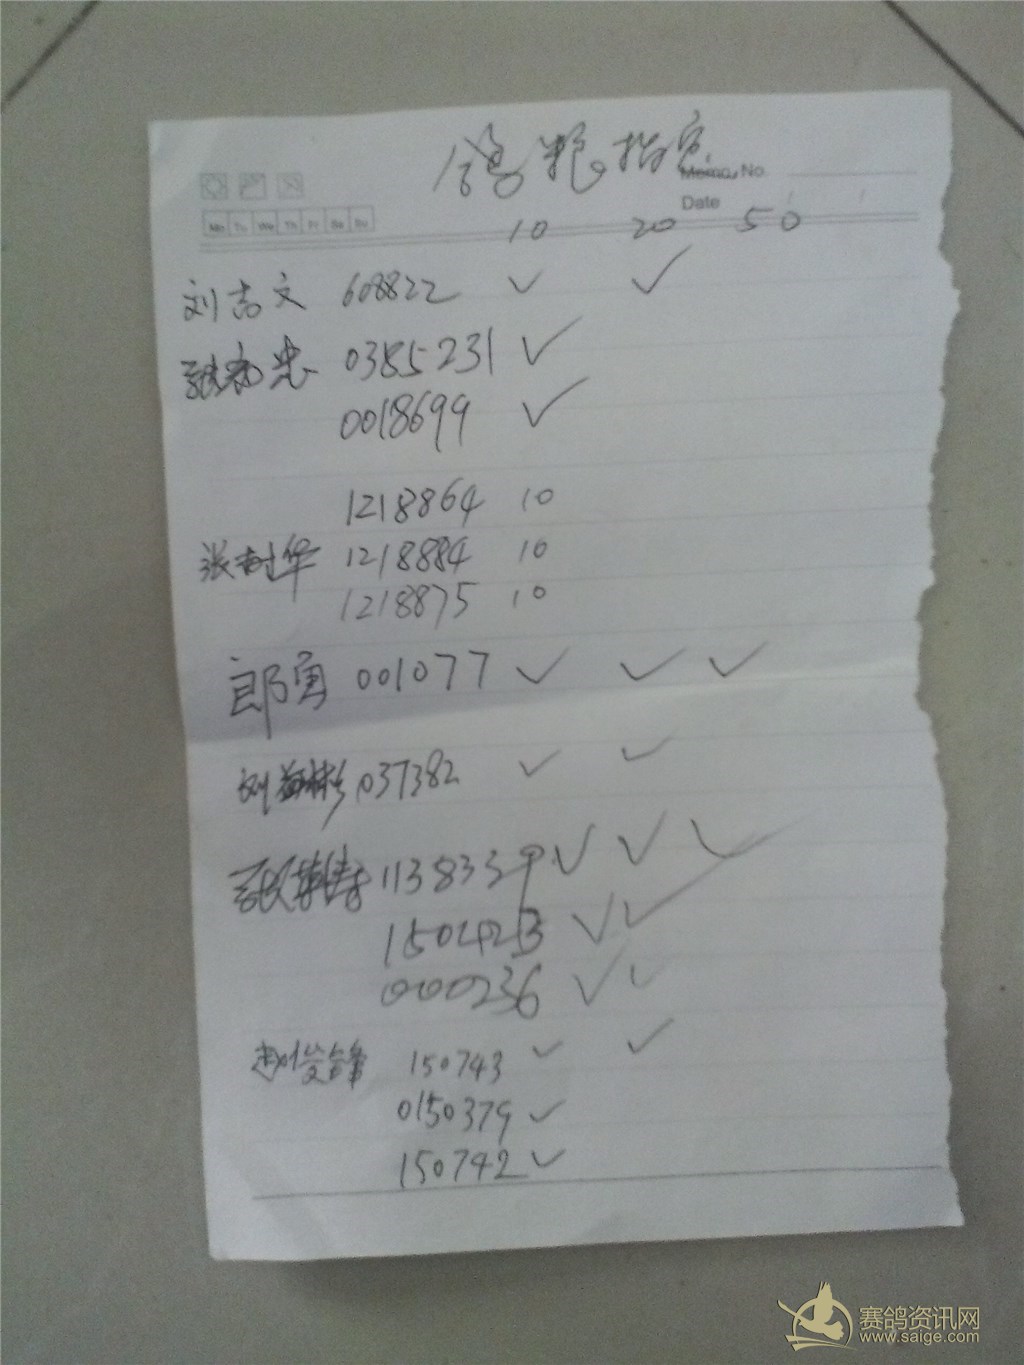 鸽粮指定
Memo. No.
Mo Tu We Th Fr Sa Su
Date
10 20 50
刘志文 608822 ✓ ✓
0385231 ✓
0018699 ✓
1218864 10
张树华 1218884 10
1218875 10
郎勇 001077 ✓ ✓ ✓
刘 037382 ✓ ✓
张 1138339 ✓ ✓ ✓
150423 ✓ ✓
000236 ✓ ✓
赵俊锋 150743 ✓ ✓
0150379 ✓
150742 ✓
赛鸽资讯网
www.saige.com